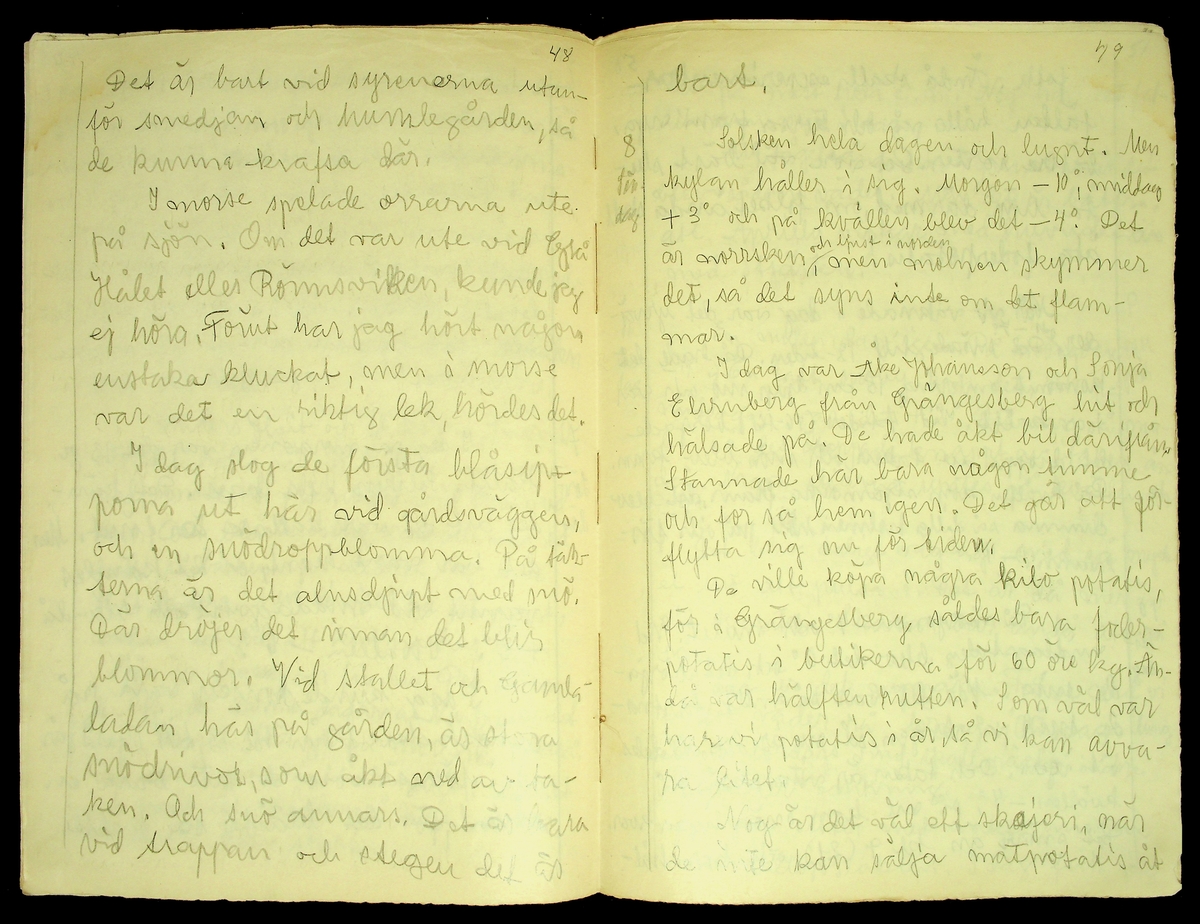 48
Det är bart vid syrenerna utan-
för smedjan och humlegården, så
de kunna krafsa där.
I morse spelade orrarna ute
på sjön. Om det var ute vid
Hålet eller Rönnsviken, kunde jag
ej höra. Förut har jag hört någon
enstaka kluckat, men i morse
var det en riktig lek, hördes det.
I dag slog de första blåsip-
porna ut här vid gårdsväggen,
och en snödroppblomma. På täk-
terna är det alnsdjupt med snö.
Där dröjer det innan det blir
blommor. Vid stallet och Gamla-
ladan här på gården, är stora
snödrivor, som åkt ned av ta-
ken. Och snö annars. Det är bara
vid trappan och stegen det är
49
bart.
8
tis-
dag
Solsken hela dagen och lugnt. Men
kylan håller i sig. Morgon -10°, middag
+3° och på kvällen blev det -4°. Det
är norrsken och ljust i norden, men molnen skymmer
det, så det syns inte om det flam-
mar.
I dag var Åke Johansson och Sonja
från Grängesberg hit och
hälsade på. De hade åkt bil därifrån.
Stannade här bara någon timme
och for så hem igen. Det går att för-
flytta sig nu för tiden.
De ville köpa några kilo potatis,
för i Grängesberg såldes bara foder-
potatis i butikerna för 60 öre kg. Än-
då var hälften rutten. Som väl var
har vi potatis i år, så vi kan avva-
ra litet.
Nog är det väl ett skojeri, när
de inte kan sälja matpotatis åt